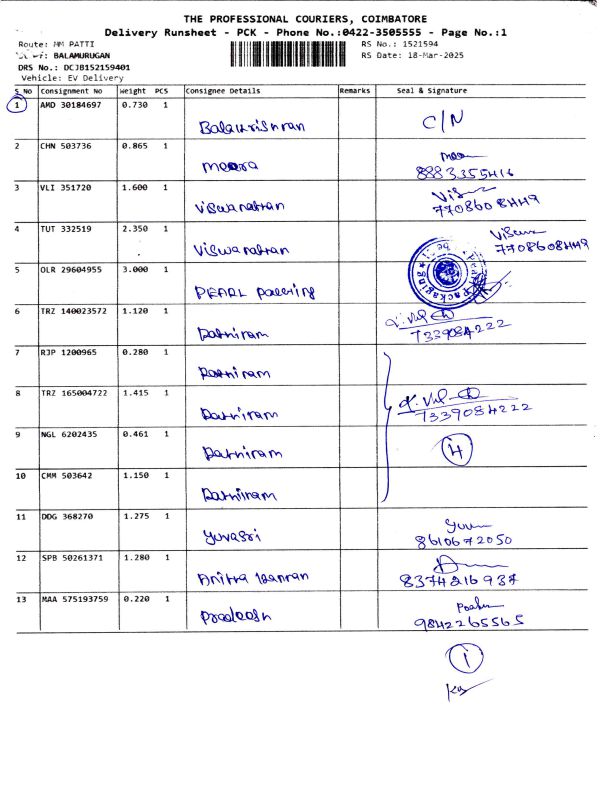 THE PROFESSIONAL COURIERS, COIMBATORE
Delivery Runsheet - PCK - Phone No.:0422-3505555 - Page No.:1
Route: MM PATTI RS No.: 1521594
BALAMURUGAN RS Date: 18-Mar-2025
DRS No.: DCJB152159401
Vehicle: EV Delivery
S.No Consignment No Weight PCS Consignee Details Remarks Seal & Signature
1 AMD 30184697 0.730 1
Balakrishnan C/N
2 CHN 503736 0.865 1
meera 8883355416
3 VLI 351720 1.600 1
Viswanathan 7708608449
4 TUT 332519 2.350 1
Viswanathan 7708608449
5 OLR 29604955 3.000 1
PEARL packing
6 TRZ 140023572 1.120 1
7339084222
7 RJP 1200965 0.280 1
8 TRZ 165004722 1.415 1
7339084222
9 NGL 6202435 0.461 1
4
10 CMM 503642 1.150 1
11 DDG 368270 1.275 1
yuvasri 8610672050
12 SPB 50261371 1.280 1
8374216937
13 MAA 575193759 0.220 1
Pradeesh 9842265565
1